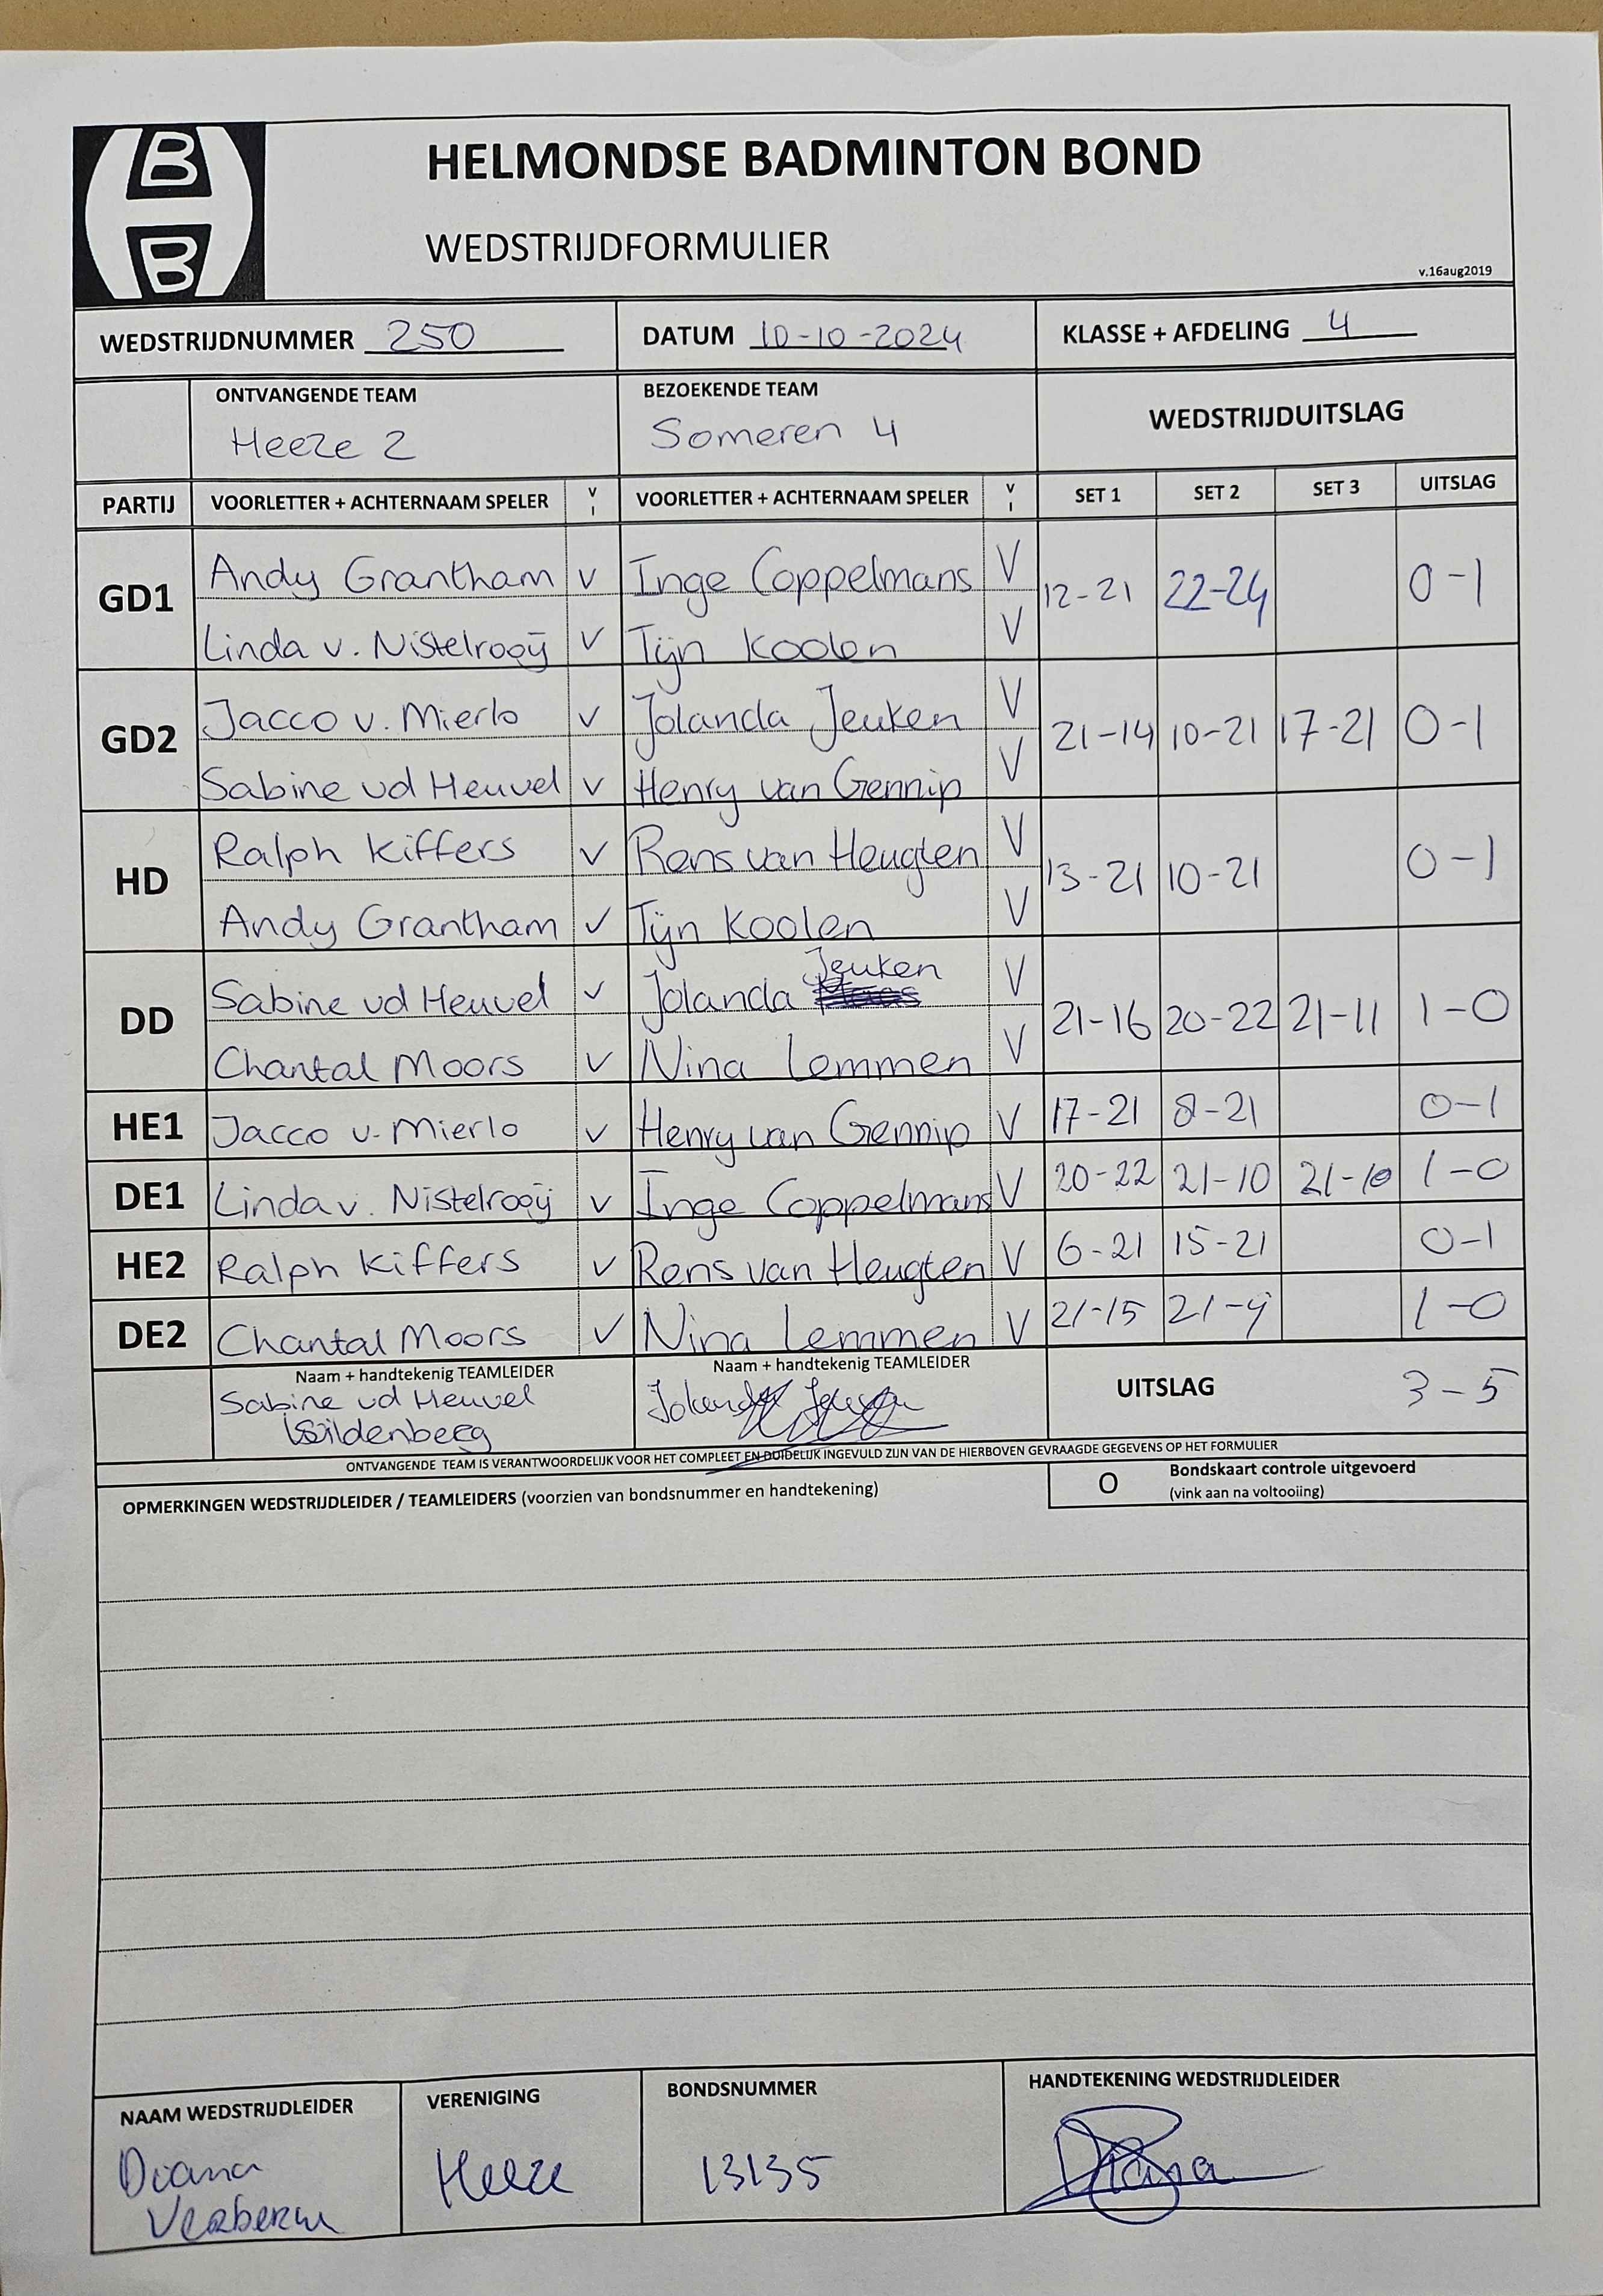 B
B
HELMONDSE BADMINTON BOND
WEDSTRIJDFORMULIER
v.16aug2019
WEDSTRIJDNUMMER 250 DATUM 10-10-2024 KLASSE + AFDELING 4
ONTVANGENDE TEAM BEZOEKENDE TEAM WEDSTRIJDUITSLAG
Heeze 2 Someren 4
PARTIJ VOORLETTER + ACHTERNAAM SPELER V I VOORLETTER + ACHTERNAAM SPELER V I SET 1 SET 2 SET 3 UITSLAG
GD1 Andy Grantham V Inge Coppelmans V 12-21 22-24 0-1
Linda v. Nistelrooÿ V Tijn Koolen V
GD2 Jacco v. Mierlo V Jolanda Jeuken V 21-14 10-21 17-21 0-1
Sabine vd Heuvel V Henry van Gennip V
HD Ralph Kiffers V Rens van Heugten V 13-21 10-21 0-1
Andy Grantham V Tijn Koolen V
DD Sabine vd Heuvel V Jolanda Jeuken V 21-16 20-22 21-11 1-0
Chantal Moors V Nina Lemmen V
HE1 Jacco v. Mierlo V Henry van Gennip V 17-21 8-21 0-1
DE1 Linda v. Nistelrooÿ V Inge Coppelmans V 20-22 21-10 21-10 1-0
HE2 Ralph Kiffers V Rens van Heugten V 6-21 15-21 0-1
DE2 Chantal Moors V Nina Lemmen V 21-15 21-9 1-0
Naam + handtekenig TEAMLEIDER Naam + handtekenig TEAMLEIDER UITSLAG 3-5
Sabine vd Heuvel Jolanda Jeuken
Wildenberg
ONTVANGENDE TEAM IS VERANTWOORDELIJK VOOR HET COMPLEET EN DUIDELIJK INGEVULD ZIJN VAN DE HIERBOVEN GEVRAAGDE GEGEVENS OP HET FORMULIER
OPMERKINGEN WEDSTRIJDLEIDER / TEAMLEIDERS (voorzien van bondsnummer en handtekening) O Bondskaart controle uitgevoerd
(vink aan na voltooiing)
NAAM WEDSTRIJDLEIDER VERENIGING BONDSNUMMER HANDTEKENING WEDSTRIJDLEIDER
Diana Heeze 13135 Diana